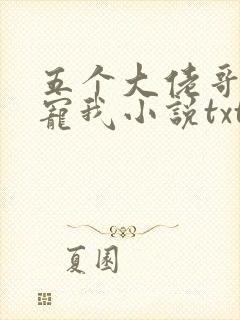 五个大佬哥
宠我小说txt
夏園